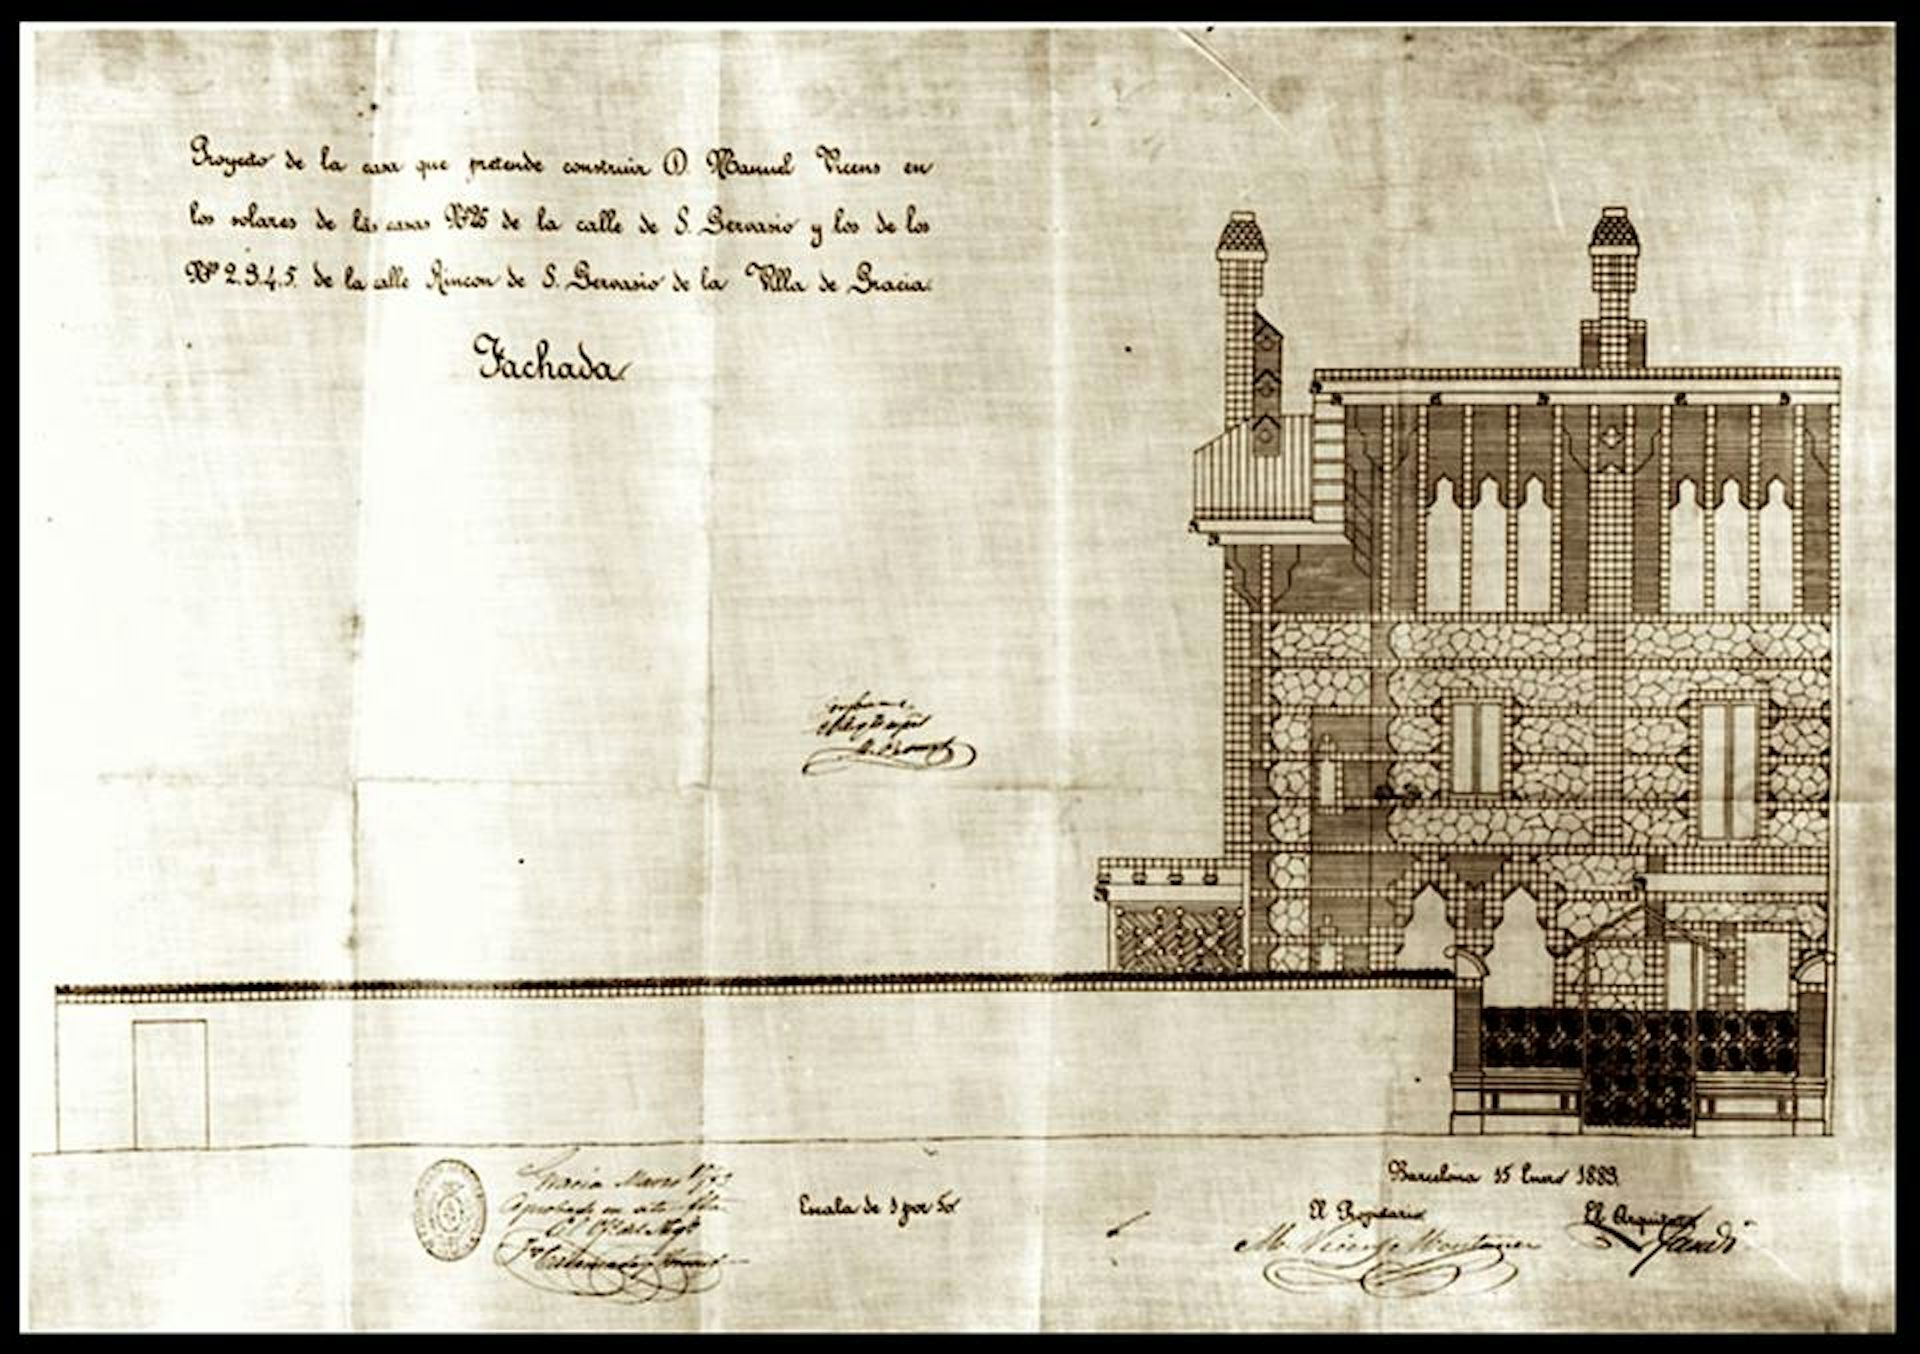 Proyecto de la casa que pretende construir D. Manuel Vicens en
los solares de las casas Nº 26 de la calle de S. Gervasio y los de los
Nº 2.3.4.5. de la calle Rincon de S. Gervasio de la Villa de Gracia.
Fachada
Gracia Marzo
Aprobado en
Escala de 1 por 50
Barcelona 15 Enero 1883.
El Propietario
El Arquitecto
M. Vicens y Montaner
Gaudí